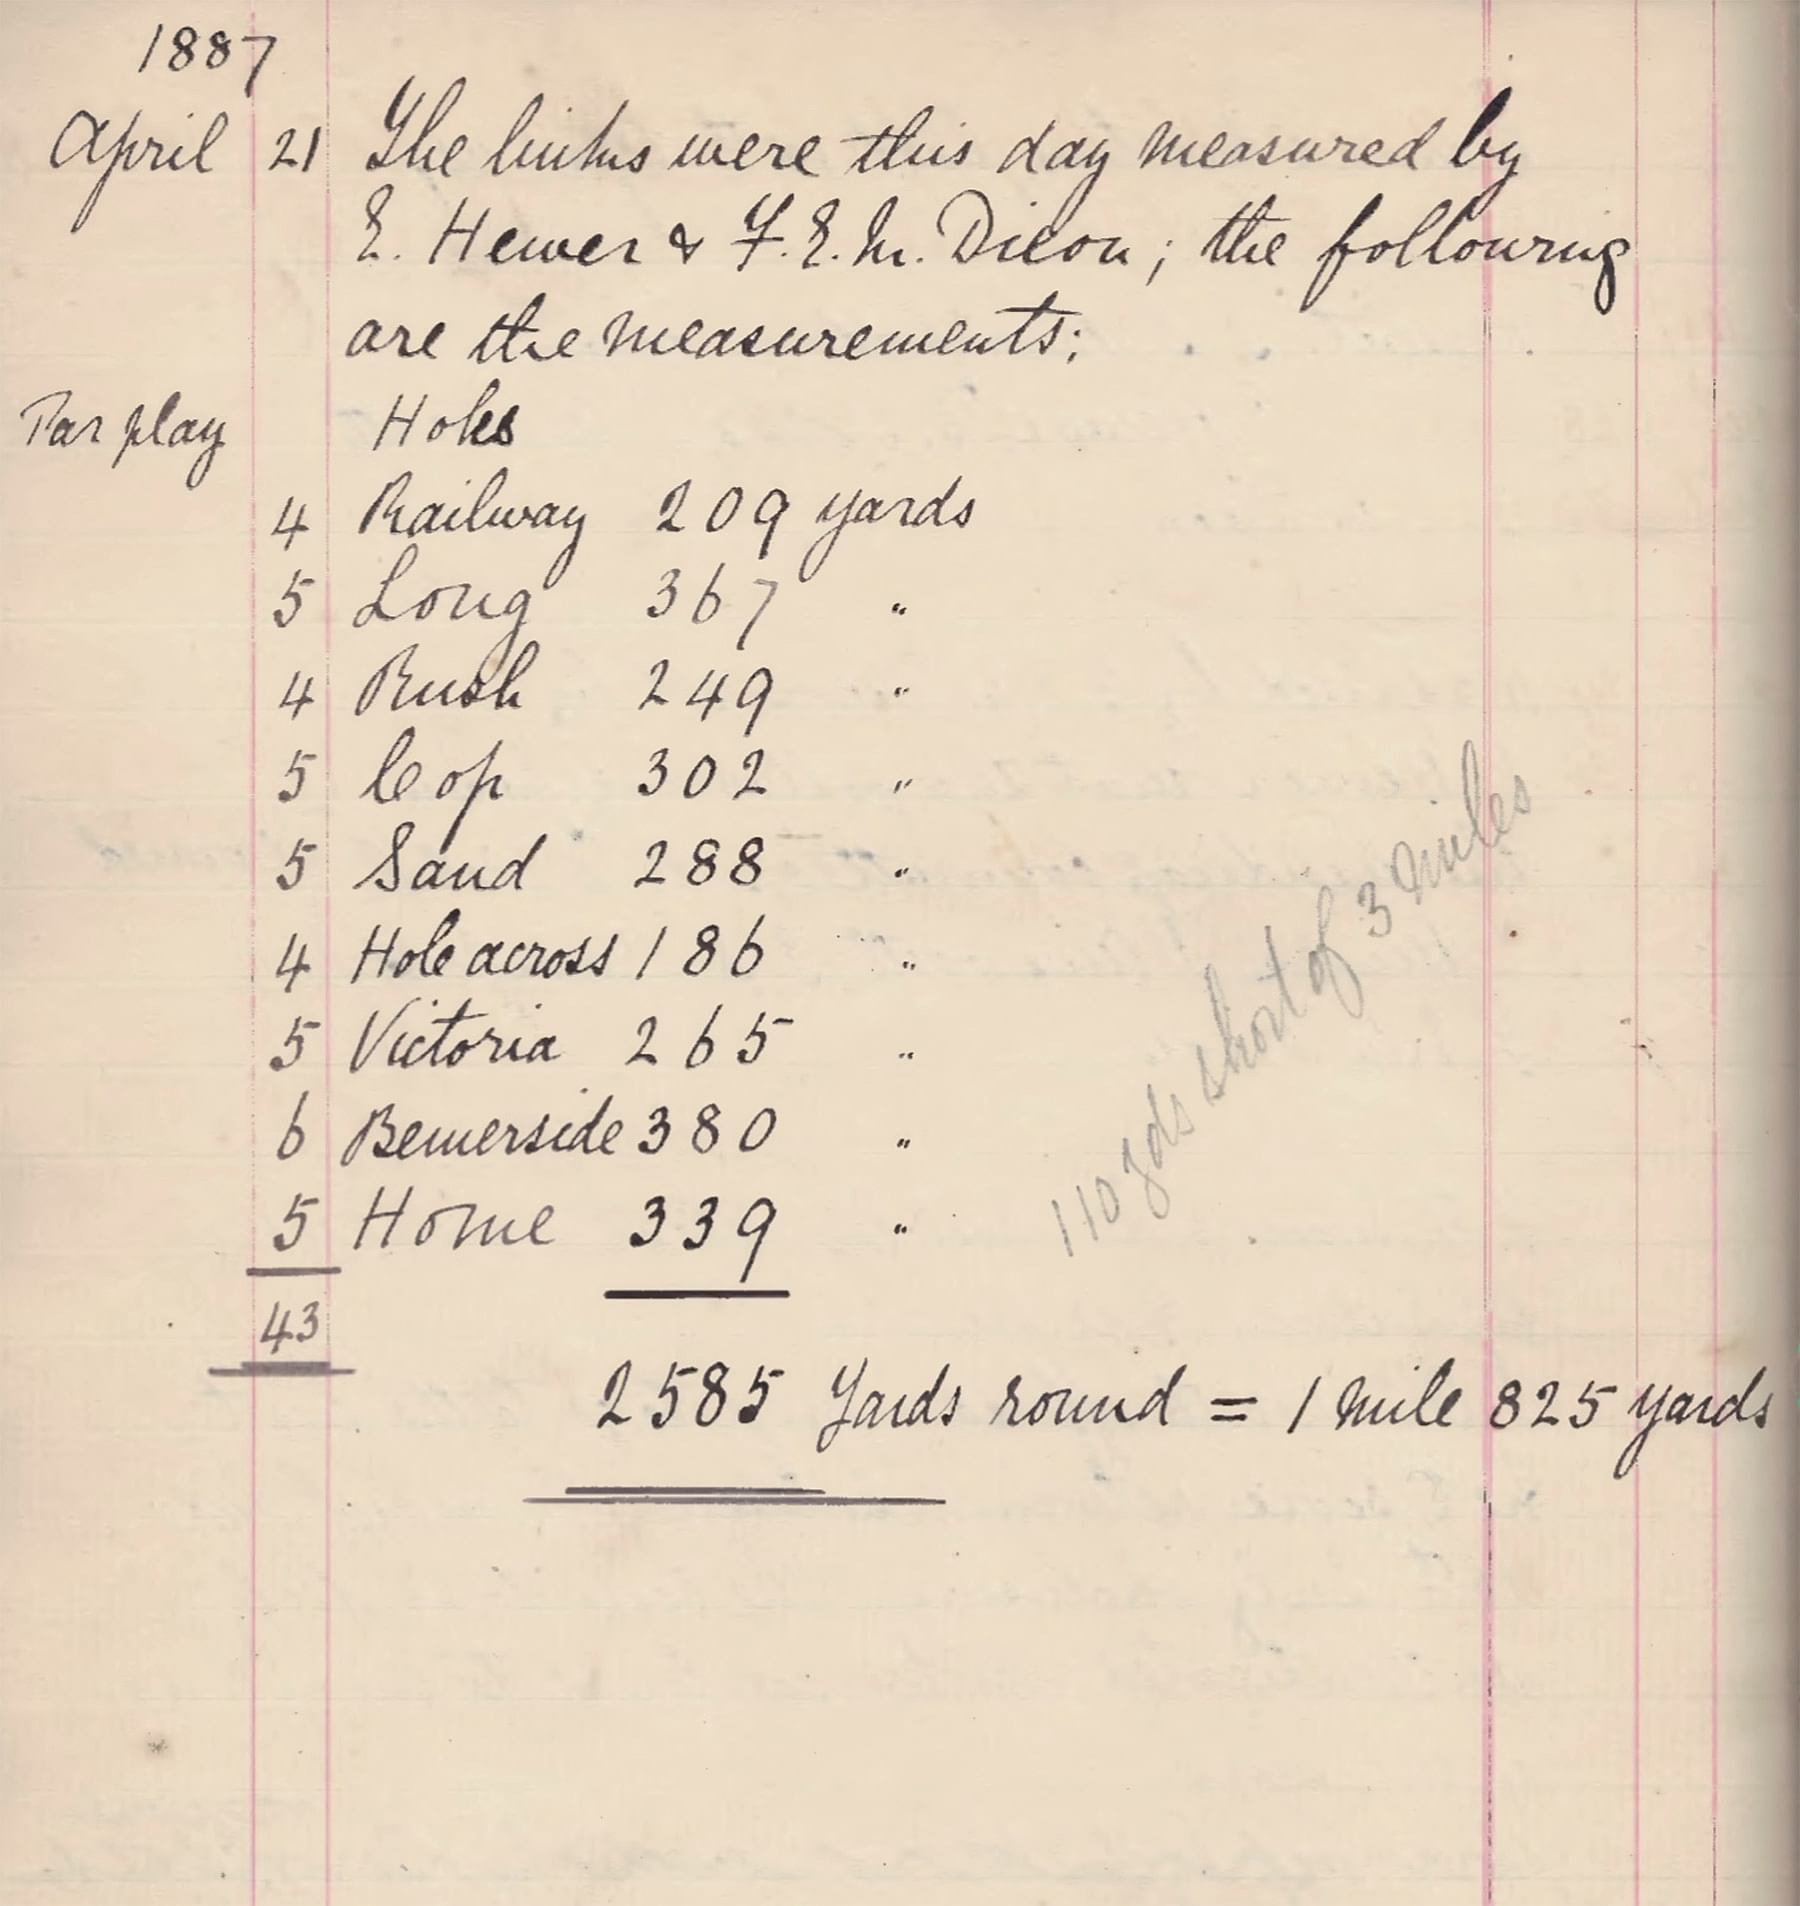 1887
April 21 The links were this day measured by
E. Hewer & F. E. M. Dixon; the following
are the measurements:
Par play Holes
4 Railway 209 yards
5 Long 367 "
4 Rush 249 "
5 Cop 302 "
5 Sand 288 "
4 Hole across 186 "
5 Victoria 265 "
6 Bemerside 380 "
5 Home 339 "
43
2585 Yards round = 1 mile 825 yards
110 yds short of 3 miles